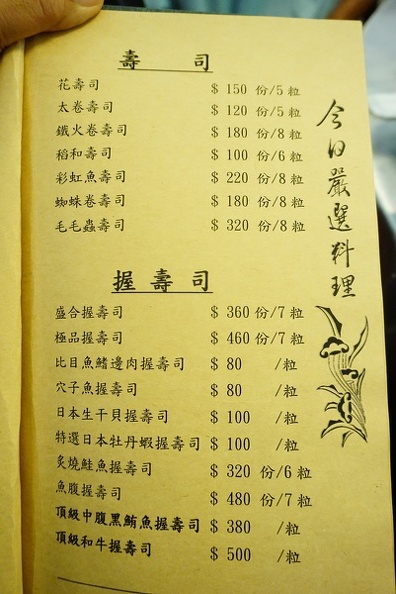 壽司
花壽司 $ 150 份/5 粒
太卷壽司 $ 120 份/5 粒
鐵火卷壽司 $ 180 份/8 粒
稻和壽司 $ 100 份/6 粒
彩虹魚壽司 $ 220 份/8 粒
蜘蛛卷壽司 $ 180 份/8 粒
毛毛蟲壽司 $ 320 份/8 粒
握壽司
盛合握壽司 $ 360 份/7 粒
極品握壽司 $ 460 份/7 粒
比目魚鰭邊肉握壽司 $ 80 /粒
穴子魚握壽司 $ 80 /粒
日本生干貝握壽司 $ 100 /粒
特選日本牡丹蝦握壽司 $ 100 /粒
炙燒鮭魚握壽司 $ 320 份/6 粒
魚腹握壽司 $ 480 份/7 粒
頂級中腹黑鮪魚握壽司 $ 380 /粒
頂級和牛握壽司 $ 500 /粒
今日嚴選料理